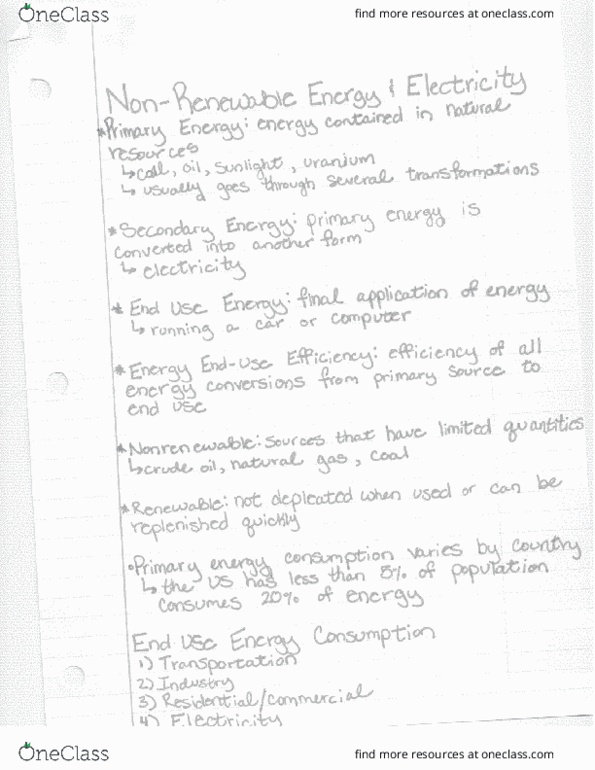 OneClass
find more resources at oneclass.com
Non-Renewable Energy & Electricity
*Primary Energy: energy contained in natural
resources
↳ coal, oil, sunlight, uranium
↳ usually goes through several transformations
*Secondary Energy: primary energy is
converted into another form
↳ electricity
* End Use Energy: final application of energy
↳ running a car or computer
*Energy End-Use Efficiency: efficiency of all
energy conversions from primary source to
end use
*Nonrenewable: sources that have limited quantities
↳ crude oil, natural gas, coal
*Renewable: not depleated when used or can be
replenished quickly
•Primary energy consumption varies by country
↳ the US has less than 5% of population
consumes 20% of energy
End Use Energy Consumption
1) Transportation
2) Industry
3) Residential/commercial
4) Electricity
OneClass
find more resources at oneclass.com